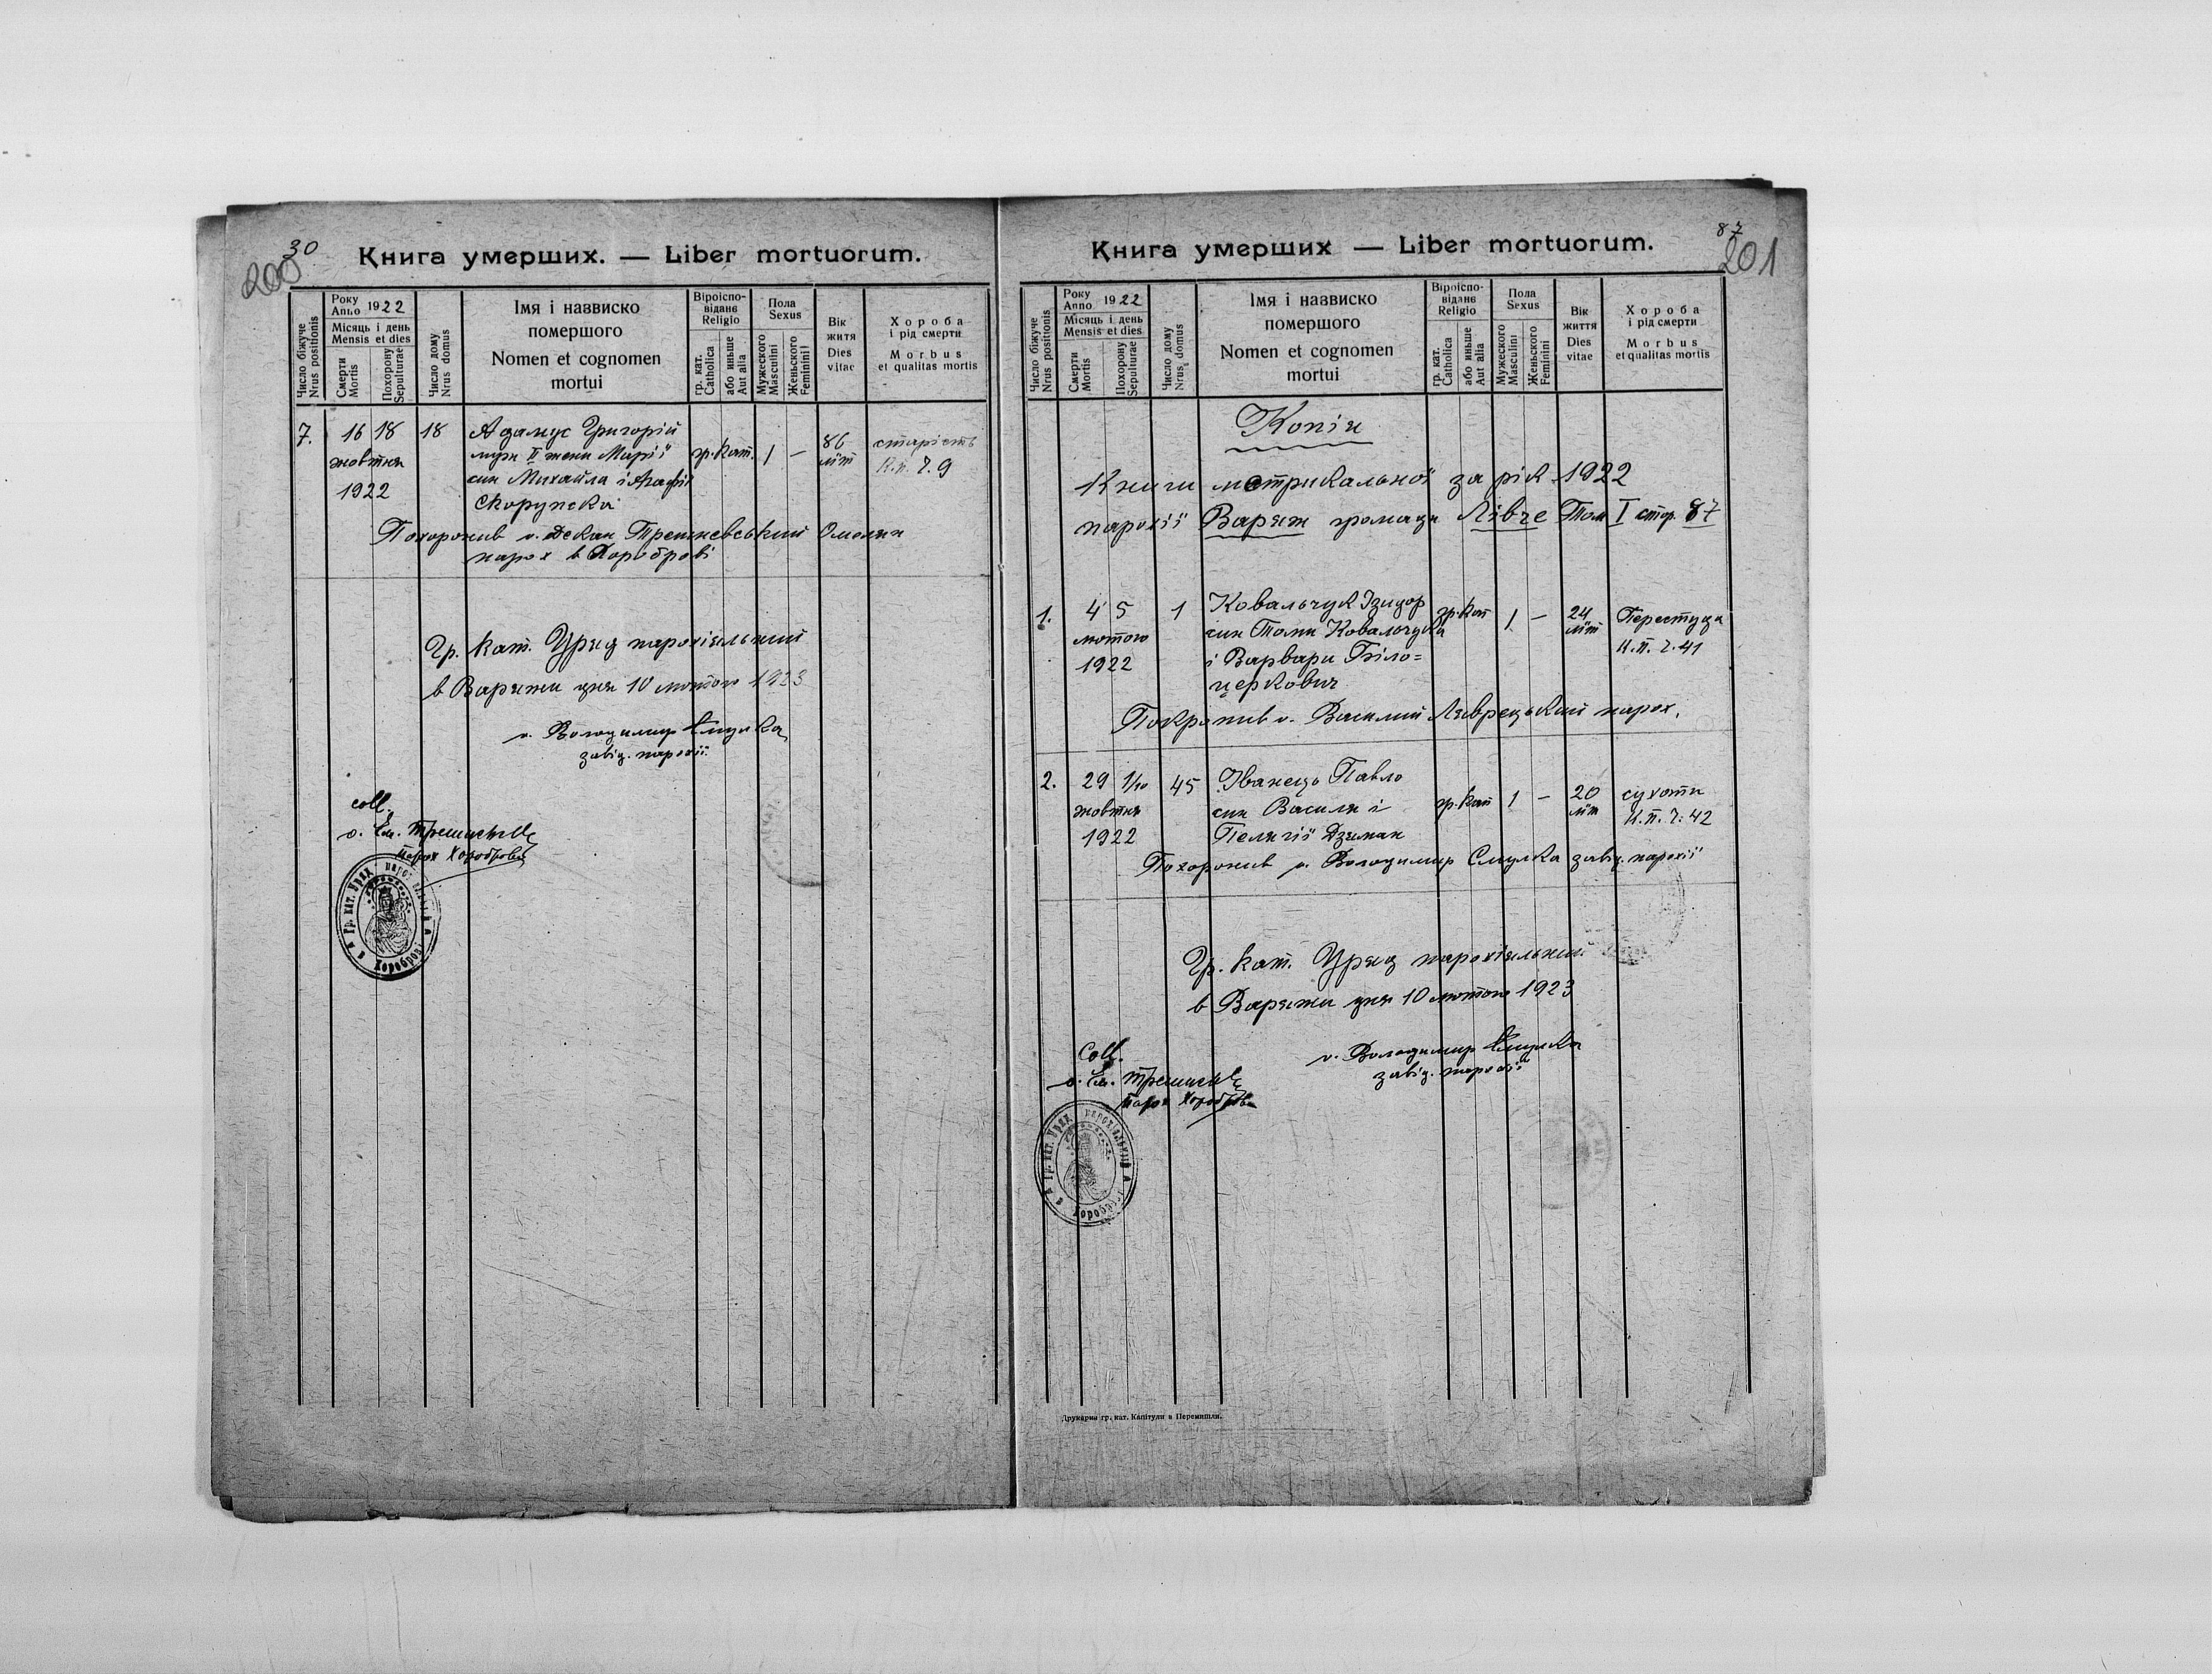 30
200
Книга умерших. — Liber mortuorum.
Число біжуче
Nrus positionis
Року
Anno 1922
Місяць і день
Mensis et dies
Смерти
Mortis
Похорону
Sepulturae
Число дому
Nrus domus
Імя і назвиско
помершого
Nomen et cognomen
mortui
Віроіспо-
відане
Religio
гр. кат.
Catholica
або иньше
Aut alia
Пола
Sexus
Мужеского
Masculini
Женьского
Feminini
Вік
житя
Dies
vitae
Хороба
і рід смерти
Morbus
et qualitas mortis
7. 16 18 18 Адамус Григорій
жовтня муж II жени Марії гр. кат. 1 — 86 літ старість
1922 син Михайла і Агафії К.п. Ч. 9
Скорупска
Похоронив о. Декан Омелян
парох в Хороброві
Гр. кат. Уряд парохіяльний
в Варяжи дня 10 лютого 1923
о. Володимир Смулка
завід. парохії
coll.
о. Ем.
парох Хороброва
Гр. кат. Уряд парохіяльний в Хороброві
87
201
Книга умерших — Liber mortuorum.
Число біжуче
Nrus positionis
Року
Anno 1922
Місяць і день
Mensis et dies
Смерти
Mortis
Похорону
Sepulturae
Число дому
Nrus domus
Імя і назвиско
помершого
Nomen et cognomen
mortui
Віроіспо-
відане
Religio
гр. кат.
Catholica
або иньше
Aut alia
Пола
Sexus
Мужеского
Masculini
Женьского
Feminini
Вік
життя
Dies
vitae
Хороба
і рід смерти
Morbus
et qualitas mortis
Копія
Книги метрикальної за рік 1922
парохії Варяж громади Лівче Том I стор. 87
1. 4 5 1 Ковальчук Ізидор гр. кат 1 — 24 літ Перестуда
лютого син Томи Ковальчука К.п. Ч. 41
1922 і Варвари Біло=
церкович
Похоронив о. Василий Лаврецький парох.
2. 29 1/10 45 Іванець Павло гр. кат 1 — 20 літ сухоти
жовтня син Василя і К.п. Ч. 42
1922 Пелягії Дземан
Похоронив о. Володимир Смулка завід. парохії
Гр. кат. Уряд парохіяльний
в Варяжи дня 10 лютого 1923
о. Володимир Смулка
завід. парохії
Coll.
о. Ем.
парох Хороброва
Гр. кат. Уряд парохіяльний в Хороброві
Друкарня гр. кат. Капітули в Перемишли.